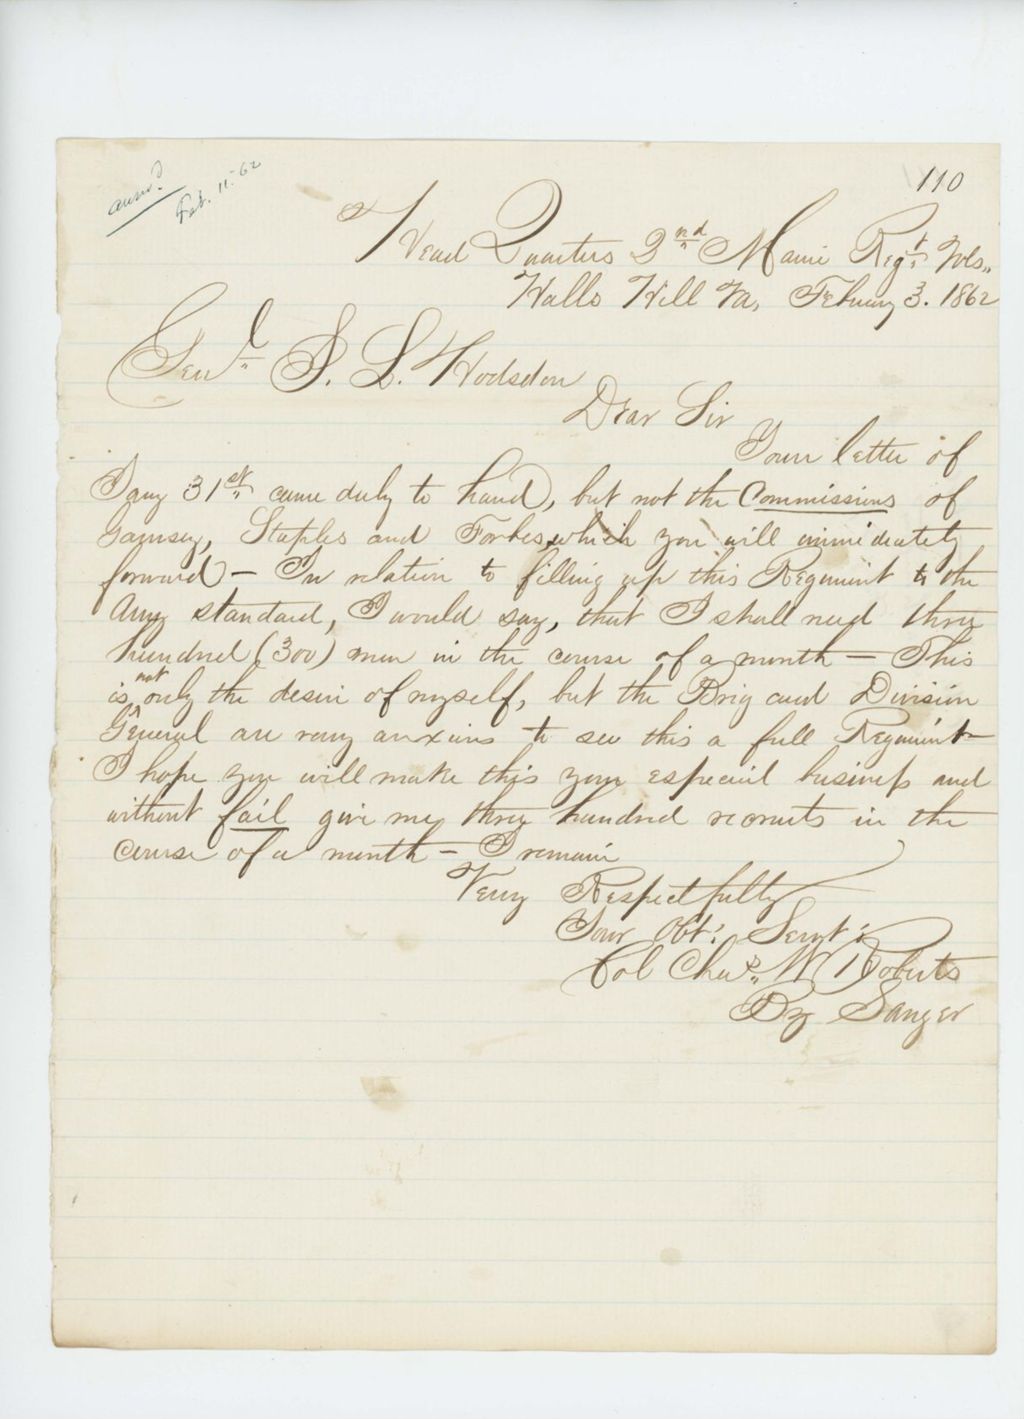 answd
Feb. 11. 62
110
Head Quarters 2nd Maine Regt Vols,,
Halls Hill Va, Febuary 3. 1862
Genl J. L. Hodsdon
Dear Sir
Your letter of
Jany 31st came duly to hand, but not the Commissions of
Garnsey, Staples and Forbes, which you will immediately
forward — In relation to filling up this Regiment to the
Army standard, I would say, that I shall need three
hundred (300) men in the course of a month — This
is not only the desire of myself, but the Brig and Division
General are very anxious to see this a full Regiment
I hope you will make this your especial business and
without fail give me three hundred recruits in the
course of a month — I remain
Very Respectfully
Your Obt: Servt:
Col Chas,, W Roberts
By Sanger